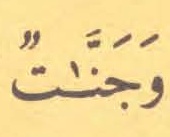 وَجَنَّـٰتٌ